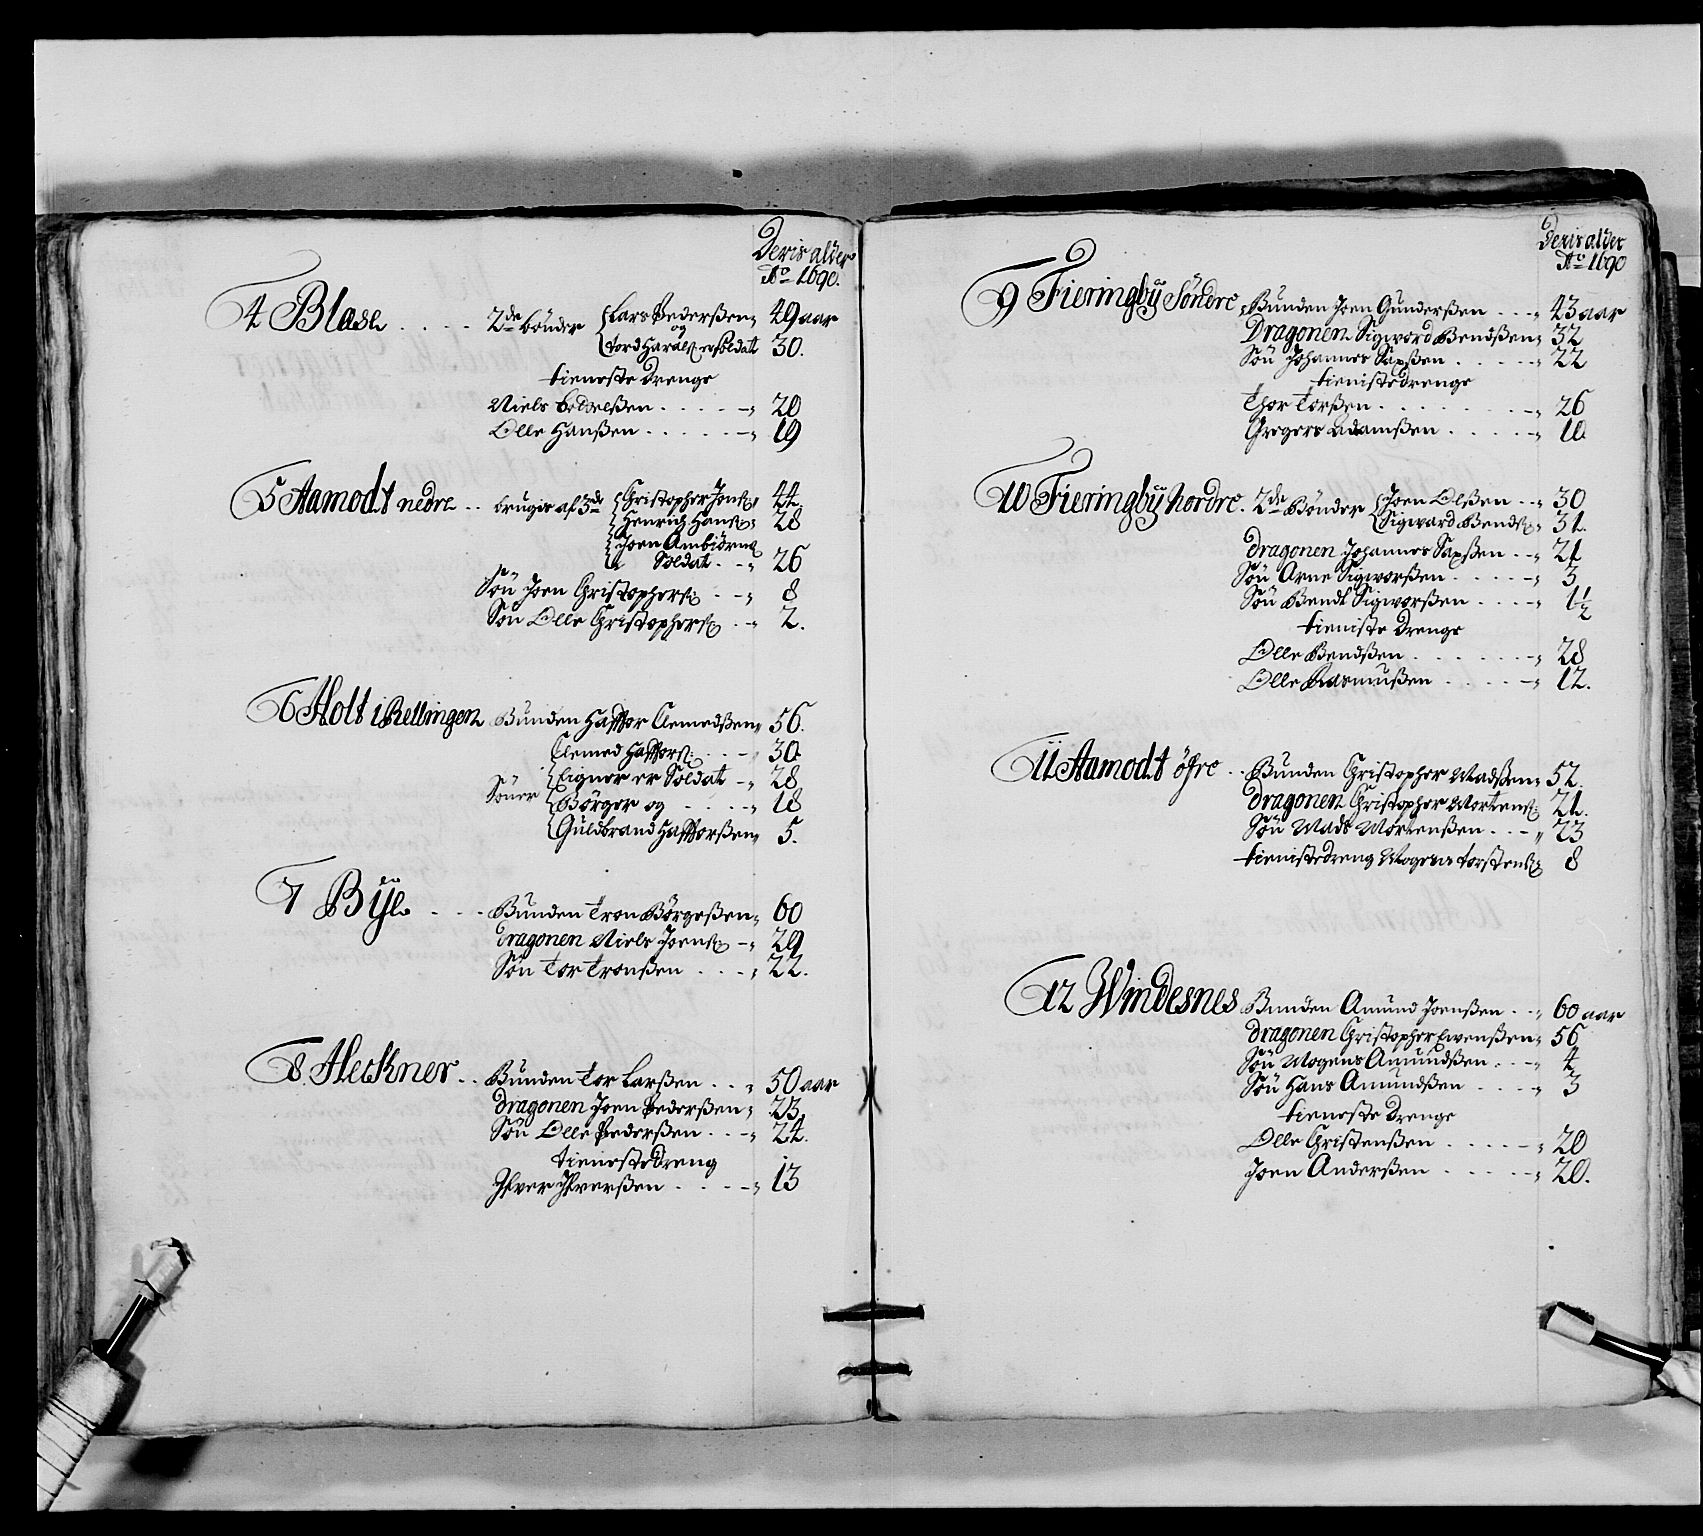 Deris alder
Ao 1690.
4 Blæse . . . . . 2de bönder Lars Pederßen 49 aar
og
tord Haralß. er Soldat 30.
tieneste drenge
Niels . . . . . 20
Olle Hanßen . . . . . 19
5 Aamodt nedre . . bruges af 3de Christopher Jonß. 44.
Henrich Hanß. 28
Joen Ambiörnß.
Soldat . . 26
Sön Joen Christopherß. . . 8
Sön Olle Christopherß. . . 2.
6 Holt i Rellingen Bunden Haffvor Clemedßen 56.
Clemed Haffvorß. . . . 30.
Söner Eignor er Soldat 28
Börger og . . . . 18
Guldbrand Haffvorßen 5.
7 Bÿe . . . Bunden Tron Börgeßen 60
Dragonen Niels Joenß. 29
Sön Tor Tronßen . . . 22.
8. Heckner . . Bunden Tor Larßen . . . 50 aar
Dragonen Joen Pederßen 23.
Sön Olle Pederßen . . . 24.
tienestedreng
Ifver Ifverßen . . . . 13
Deris alder
Ao 1690
9 Fieringbÿ Söndre Bunden Joen Gunderßen . . . 43 aar
Dragonen Sigword Bendßen 32
Sön Johannes Saxßen . . . . 22
tienistedrenge
Thor Torßen . . . . . . . 26
Gregers Adamßen . . . . . 10.
10 Fieringbÿ Nordre. 2de Bönder Joen Olßen . . 30
Sigward Bendß. 31.
dragonen Johannes Saxßen . . 21
Sön Arne Sigworßen . . . . . 3
Sön Bendt Sigworßen . . . . 1½
tieniste drenge
Olle Bendßen . . . . . . 28
Olle Rasmußen . . . . . 12.
11 Aamodt öfre . . Bunden Christopher Madßen 52.
dragonen Christopher Mortenß. 21.
Sön Mads Mortenßen . . . 23
tienistedreng Mogens torstenß. 8
12 Windesnes Bunden Amund Joenßen . . 60 aar
dragonen Christopher Ewenßen 56
Sön Mogens Amundßen . . . 4
Sön Hans Amundßen . . . . 3
tieneste drenge
Olle Christenßen . . . . . 20
Joen Anderßen . . . . . 20.